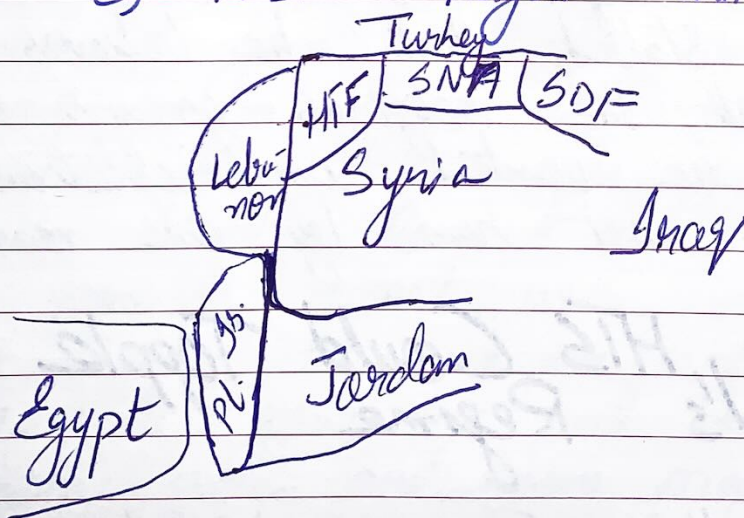 Turkey
HTF SNA SDF
Leba-
non
Syria
Iraq
Is.
PL.
Jordan
Egypt